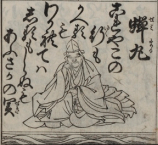 蝉丸
これやこの
行も
かへるも
わかれては
しるもしらぬも
あふさかの関